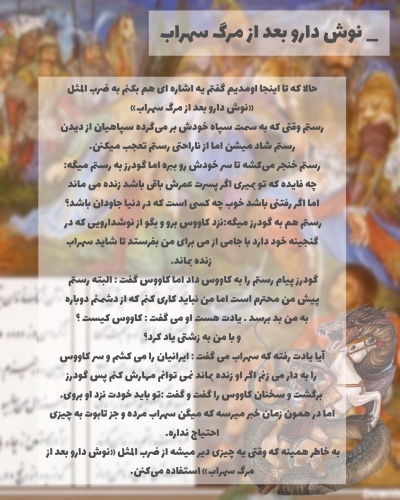 _ نوش دارو بعد از مرگ سهراب
حالا که تا اینجا اومدیم گفتم یه اشاره ای هم بکنم به ضرب المثل
«نوش دارو بعد از مرگ سهراب»
رستم وقتی که به سمت سپاه خودش بر می‌گرده سپاهیان از دیدن
رستم شاد میشن اما از ناراحتی رستم تعجب میکنن.
رستم خنجر می‌کشه تا سر خودش رو ببره اما گودرز به رستم میگه:
چه فایده که تو بمیری اگر پسرت عمرش باقی باشد زنده می ماند
اما اگر رفتنی باشد خوب چه کسی است که در دنیا جاودان باشد؟
رستم هم به گودرز میگه:نزد کاووس برو و بگو از نوشدارویی که در
گنجینه خود دارد با جامی از می برای من بفرستد تا شاید سهراب
زنده بماند.
گودرز پیام رستم را به کاووس داد اما کاووس گفت : البته رستم
پیش من محترم است اما من نباید کاری کنم که از دشمنم دوباره
به من بد برسد . یادت هست او می گفت : کاووس کیست ؟
و با من به زشتی یاد کرد؟
آیا یادت رفته که سهراب می گفت : ایرانیان را می کشم و سر کاووس
را به دار می زنم اگر او زنده بماند نمی توانم مهارش کنم پس گودرز
برگشت و سخنان کاووس را گفت و گفت :تو باید خودت نزد او بروی.
اما در همون زمان خبر میرسه که میگن سهراب مرده و جز تابوت به چیزی
احتیاج نداره.
به خاطر همینه که وقتی یه چیزی دیر میشه از ضرب المثل «نوش دارو بعد از
مرگ سهراب» استفاده می‌کنن.